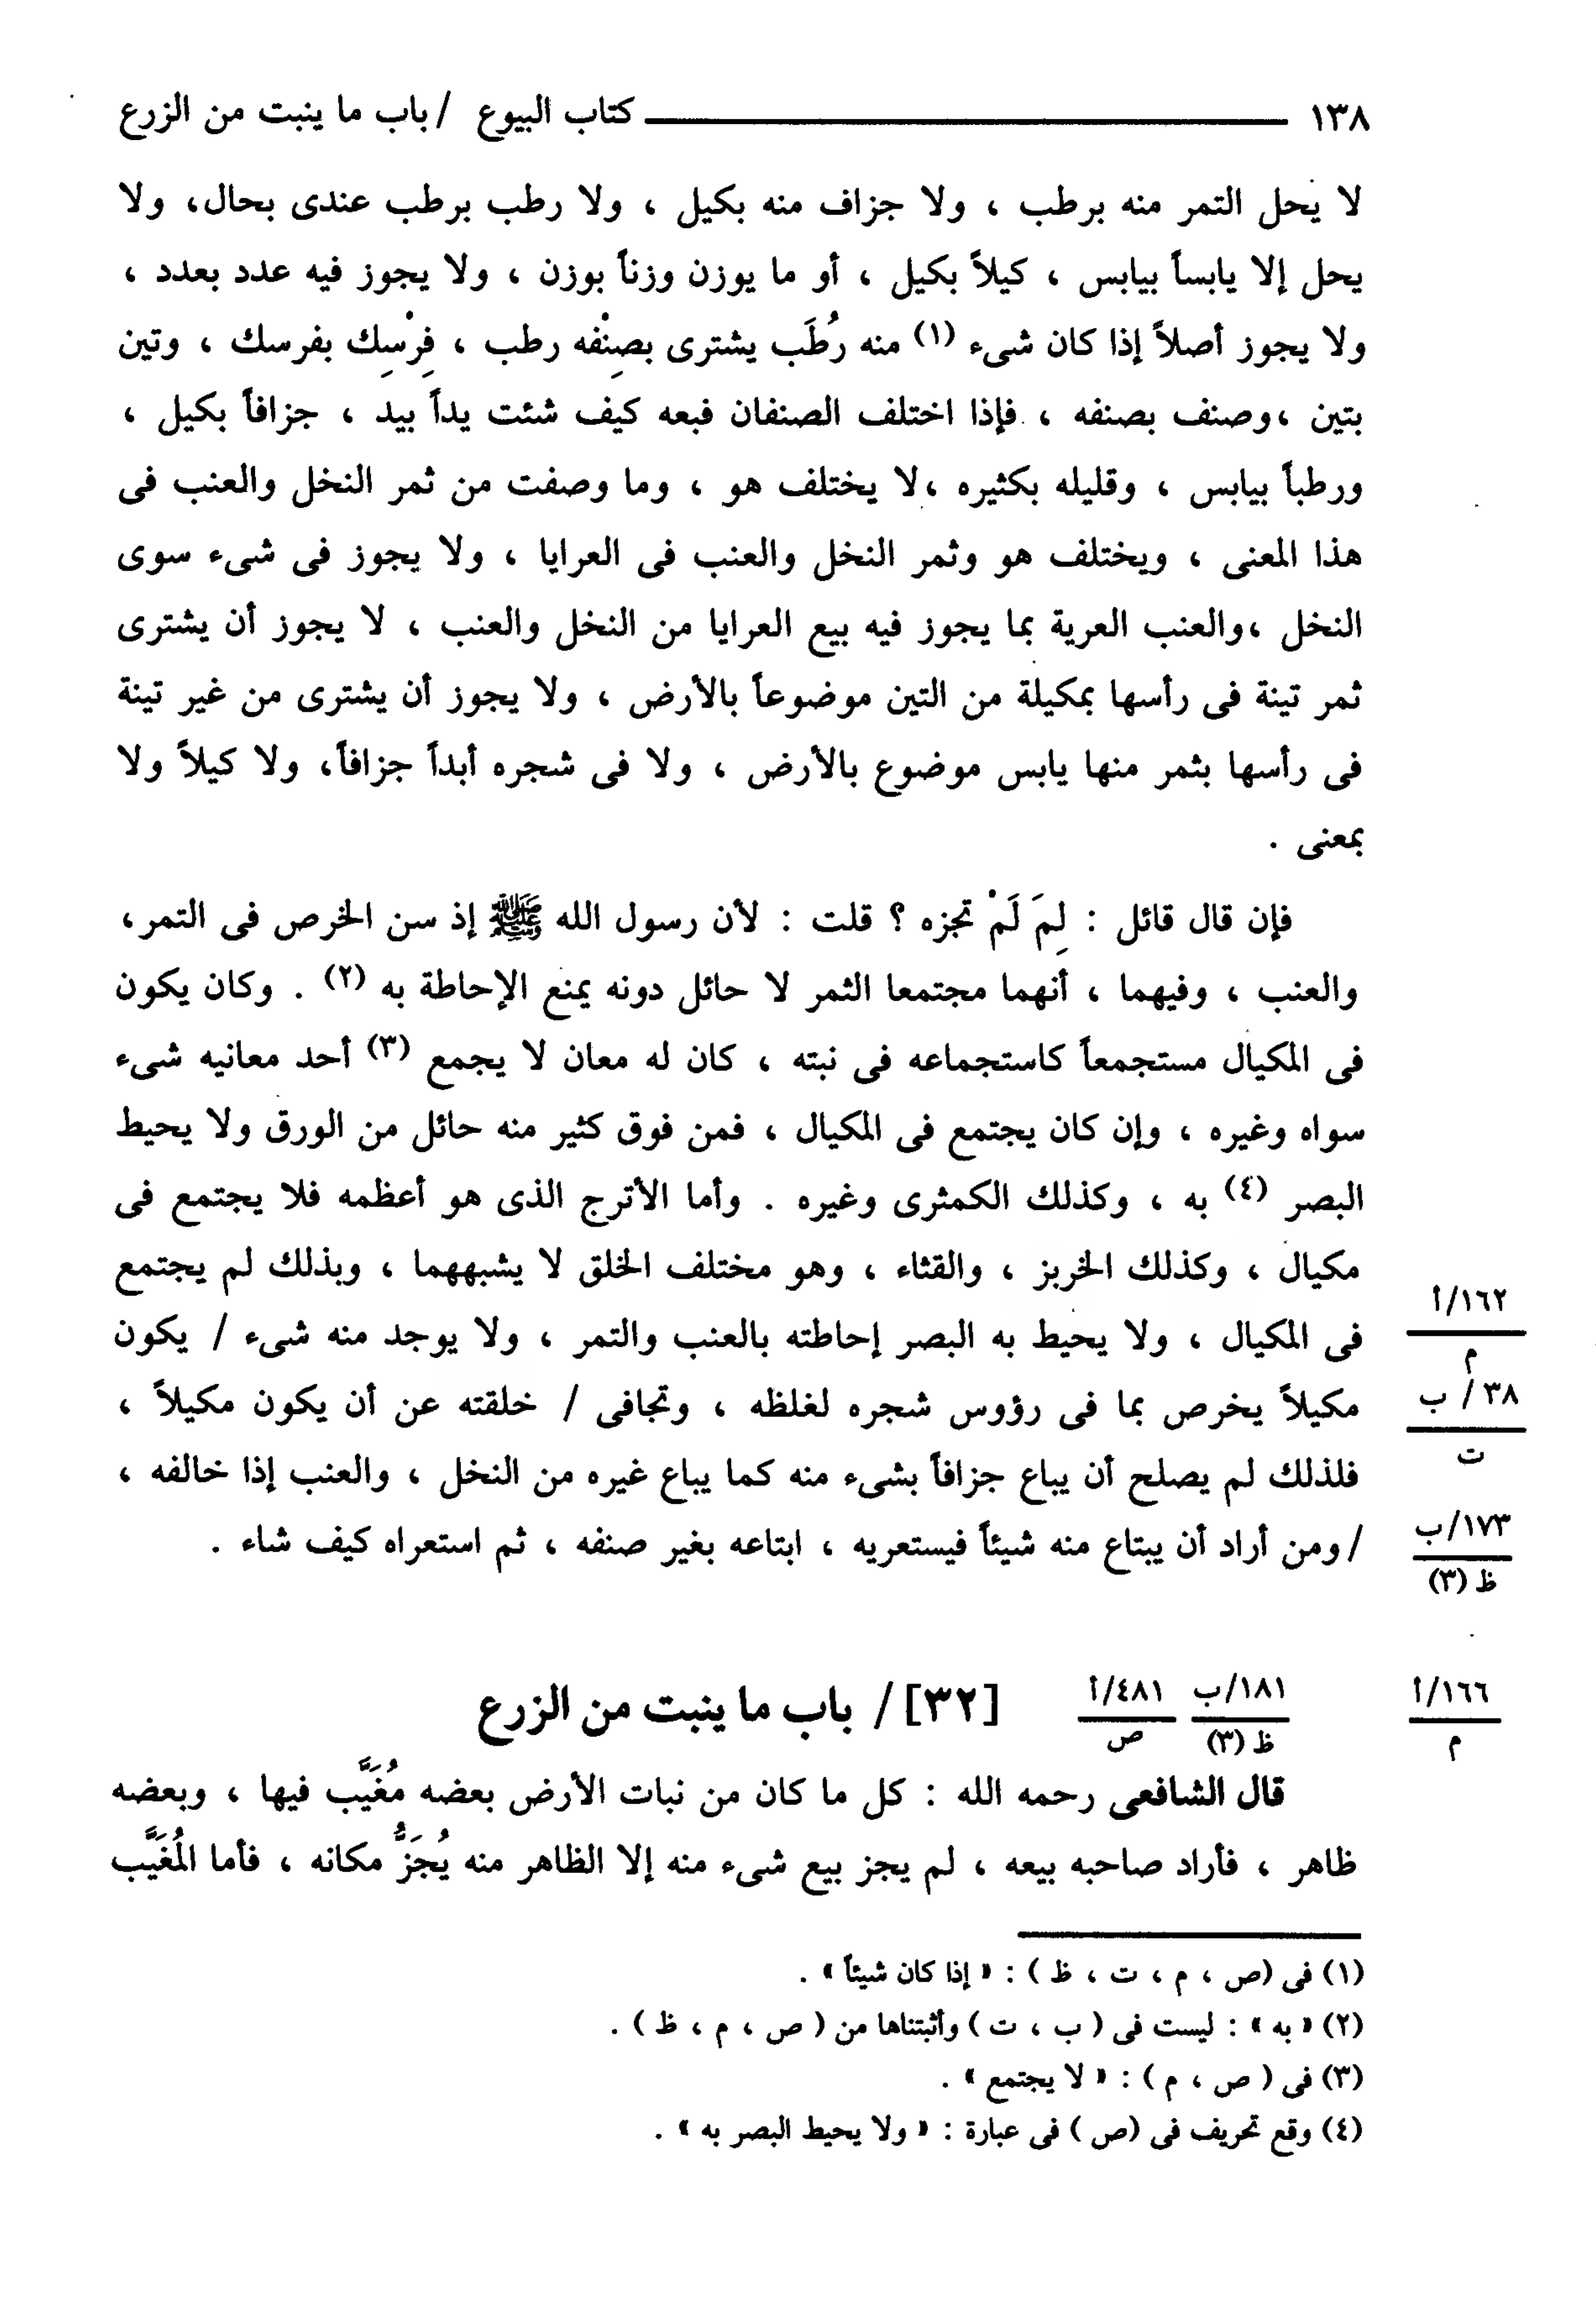 ١٣٨ كتاب البيوع / باب ما ينبت من الزرع
لا يحل التمر منه برطب ، ولا جزاف منه بكيل ، ولا رطب برطب عندى بحال، ولا
يحل إلا يابساً بيابس ، كيلاً بكيل ، أو ما يوزن وزناً بوزن ، ولا يجوز فيه عدد بعدد ،
ولا يجوز أصلاً إذا كان شىء (١) منه رُطَب يشترى بصِنْفه رطب ، فِرْسِك بفرسك ، وتين
بتين ،وصنف بصنفه ، فإذا اختلف الصنفان فبعه كيف شئت يداً بيد ، جزافاً بكيل ،
ورطباً بيابس ، وقليله بكثيره ،لا يختلف هو ، وما وصفت من ثمر النخل والعنب فى
هذا المعنى ، ويختلف هو وثمر النخل والعنب فى العرايا ، ولا يجوز فى شىء سوى
النخل ،والعنب العرية بما يجوز فيه بيع العرايا من النخل والعنب ، لا يجوز أن يشترى
ثمر تينة فى رأسها بمكيلة من التين موضوعاً بالأرض ، ولا يجوز أن يشترى من غير تينة
فى رأسها بثمر منها يابس موضوع بالأرض ، ولا فى شجره أبداً جزافاً، ولا كيلاً ولا
بمعنى .
فإن قال قائل : لِمَ لَمْ تجزه ؟ قلت : لأن رسول الله ﷺ إذ سن الخرص فى التمر،
والعنب ، وفيهما ، أنهما مجتمعا الثمر لا حائل دونه يمنع الإحاطة به (٢) . وكان يكون
فى المكيال مستجمعاً كاستجماعه فى نبته ، كان له معان لا يجمع (٣) أحد معانيه شىء
سواه وغيره ، وإن كان يجتمع فى المكيال ، فمن فوق كثير منه حائل من الورق ولا يحيط
البصر (٤) به ، وكذلك الكمثرى وغيره . وأما الأترج الذى هو أعظمه فلا يجتمع فى
مكيال ، وكذلك الخربز ، والقثاء ، وهو مختلف الخلق لا يشبههما ، وبذلك لم يجتمع
١٦٢/أ
فى المكيال ، ولا يحيط به البصر إحاطته بالعنب والتمر ، ولا يوجد منه شىء / يكون
م
٣٨ / ب
مكيلاً يخرص بما فى رؤوس شجره لغلظه ، وتجافى / خلقته عن أن يكون مكيلاً ،
ت
فلذلك لم يصلح أن يباع جزافاً بشىء منه كما يباع غيره من النخل ، والعنب إذا خالفه ،
١٧٣/ب
/ ومن أراد أن يبتاع منه شيئاً فيستعريه ، ابتاعه بغير صنفه ، ثم استعراه كيف شاء .
ظ (٣)
١٦٦/أ ١٨١/ب ٤٨١/أ
م ظ (٣) ص
[٣٢] / باب ما ينبت من الزرع
قال الشافعى رحمه الله : كل ما كان من نبات الأرض بعضه مُغَيَّب فيها ، وبعضه
ظاهر ، فأراد صاحبه بيعه ، لم يجز بيع شىء منه إلا الظاهر منه يُجَزُّ مكانه ، فأما المُغَيَّب
(١) فى (ص ، م ، ت ، ظ ) : « إذا كان شيئاً » .
(٢) « به » : ليست فى ( ب ، ت ) وأثبتناها من ( ص ، م ، ظ ) .
(٣) فى ( ص ، م ) : « لا يجتمع » .
(٤) وقع تحريف فى (ص ) فى عبارة : « ولا يحيط البصر به » .